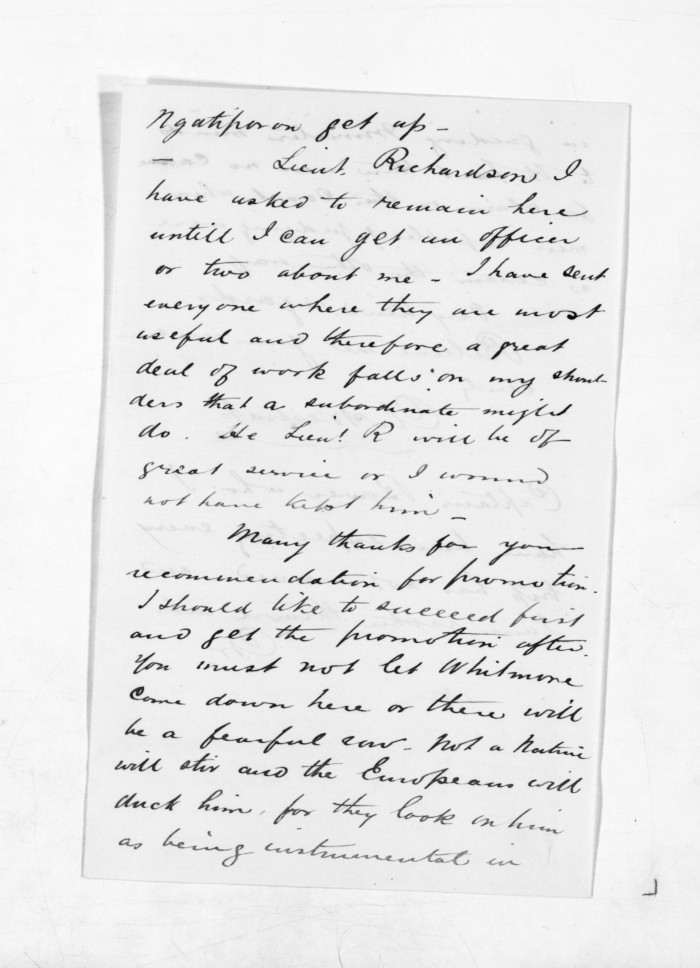 Ngatiporou get up -
- Lieut. Richardson I
have asked to remain here
untill I can get an officer
or two about me - I have sent
everyone where they are most
useful and therefore a great
deal of work falls on my shoul-
ders that a subordinate might
do. He Lieut. R will be of
great service or I would
not have kept him -
Many thanks for you
recommendation for promotion.
I should like to succeed first
and get the promotion after.
You must not let Whitmore
come down here or there will
be a fearful row - Not a Native
will stir and the Europeans will
duck him, for they look on him
as being instrumental in